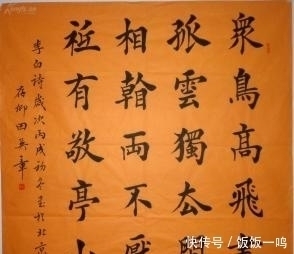 衆鳥高飛
孤雲獨厺閒
相看両不厭
祗有敬亭山
李白詩歲次丙戌初冬書於北京
存卿田英章
快传号 / 饭饭一鸣